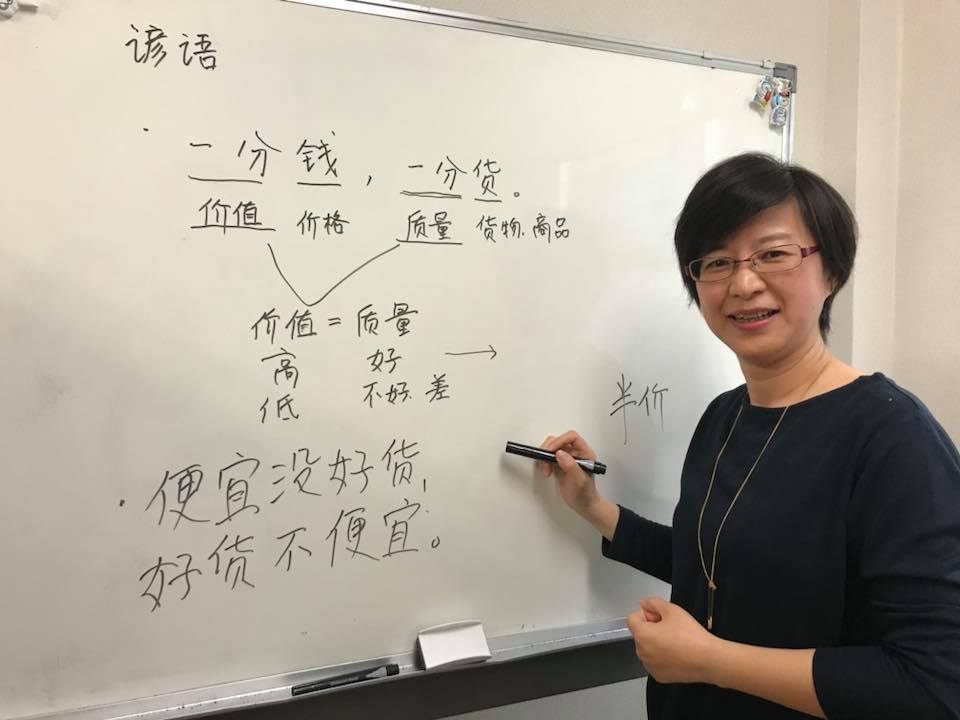 谚语
· 一分钱，一分货。
价值 价格 质量 货物、商品
价值 = 质量
高 好 →
低 不好、差
半价
· 便宜没好货，
好货不便宜。